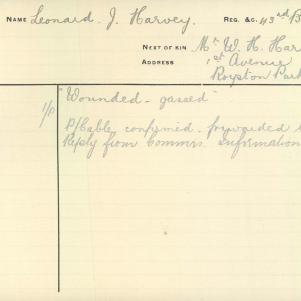 NAME Leonard. J. Harvey. REG. &C. 43rd B
NEXT OF KIN Mr W. H. Har
ADDRESS 1st Avenue
Royston Park
"Wounded - gassed"
1/P
P/Cable confirmed forwarded
Reply from Commrs. Information